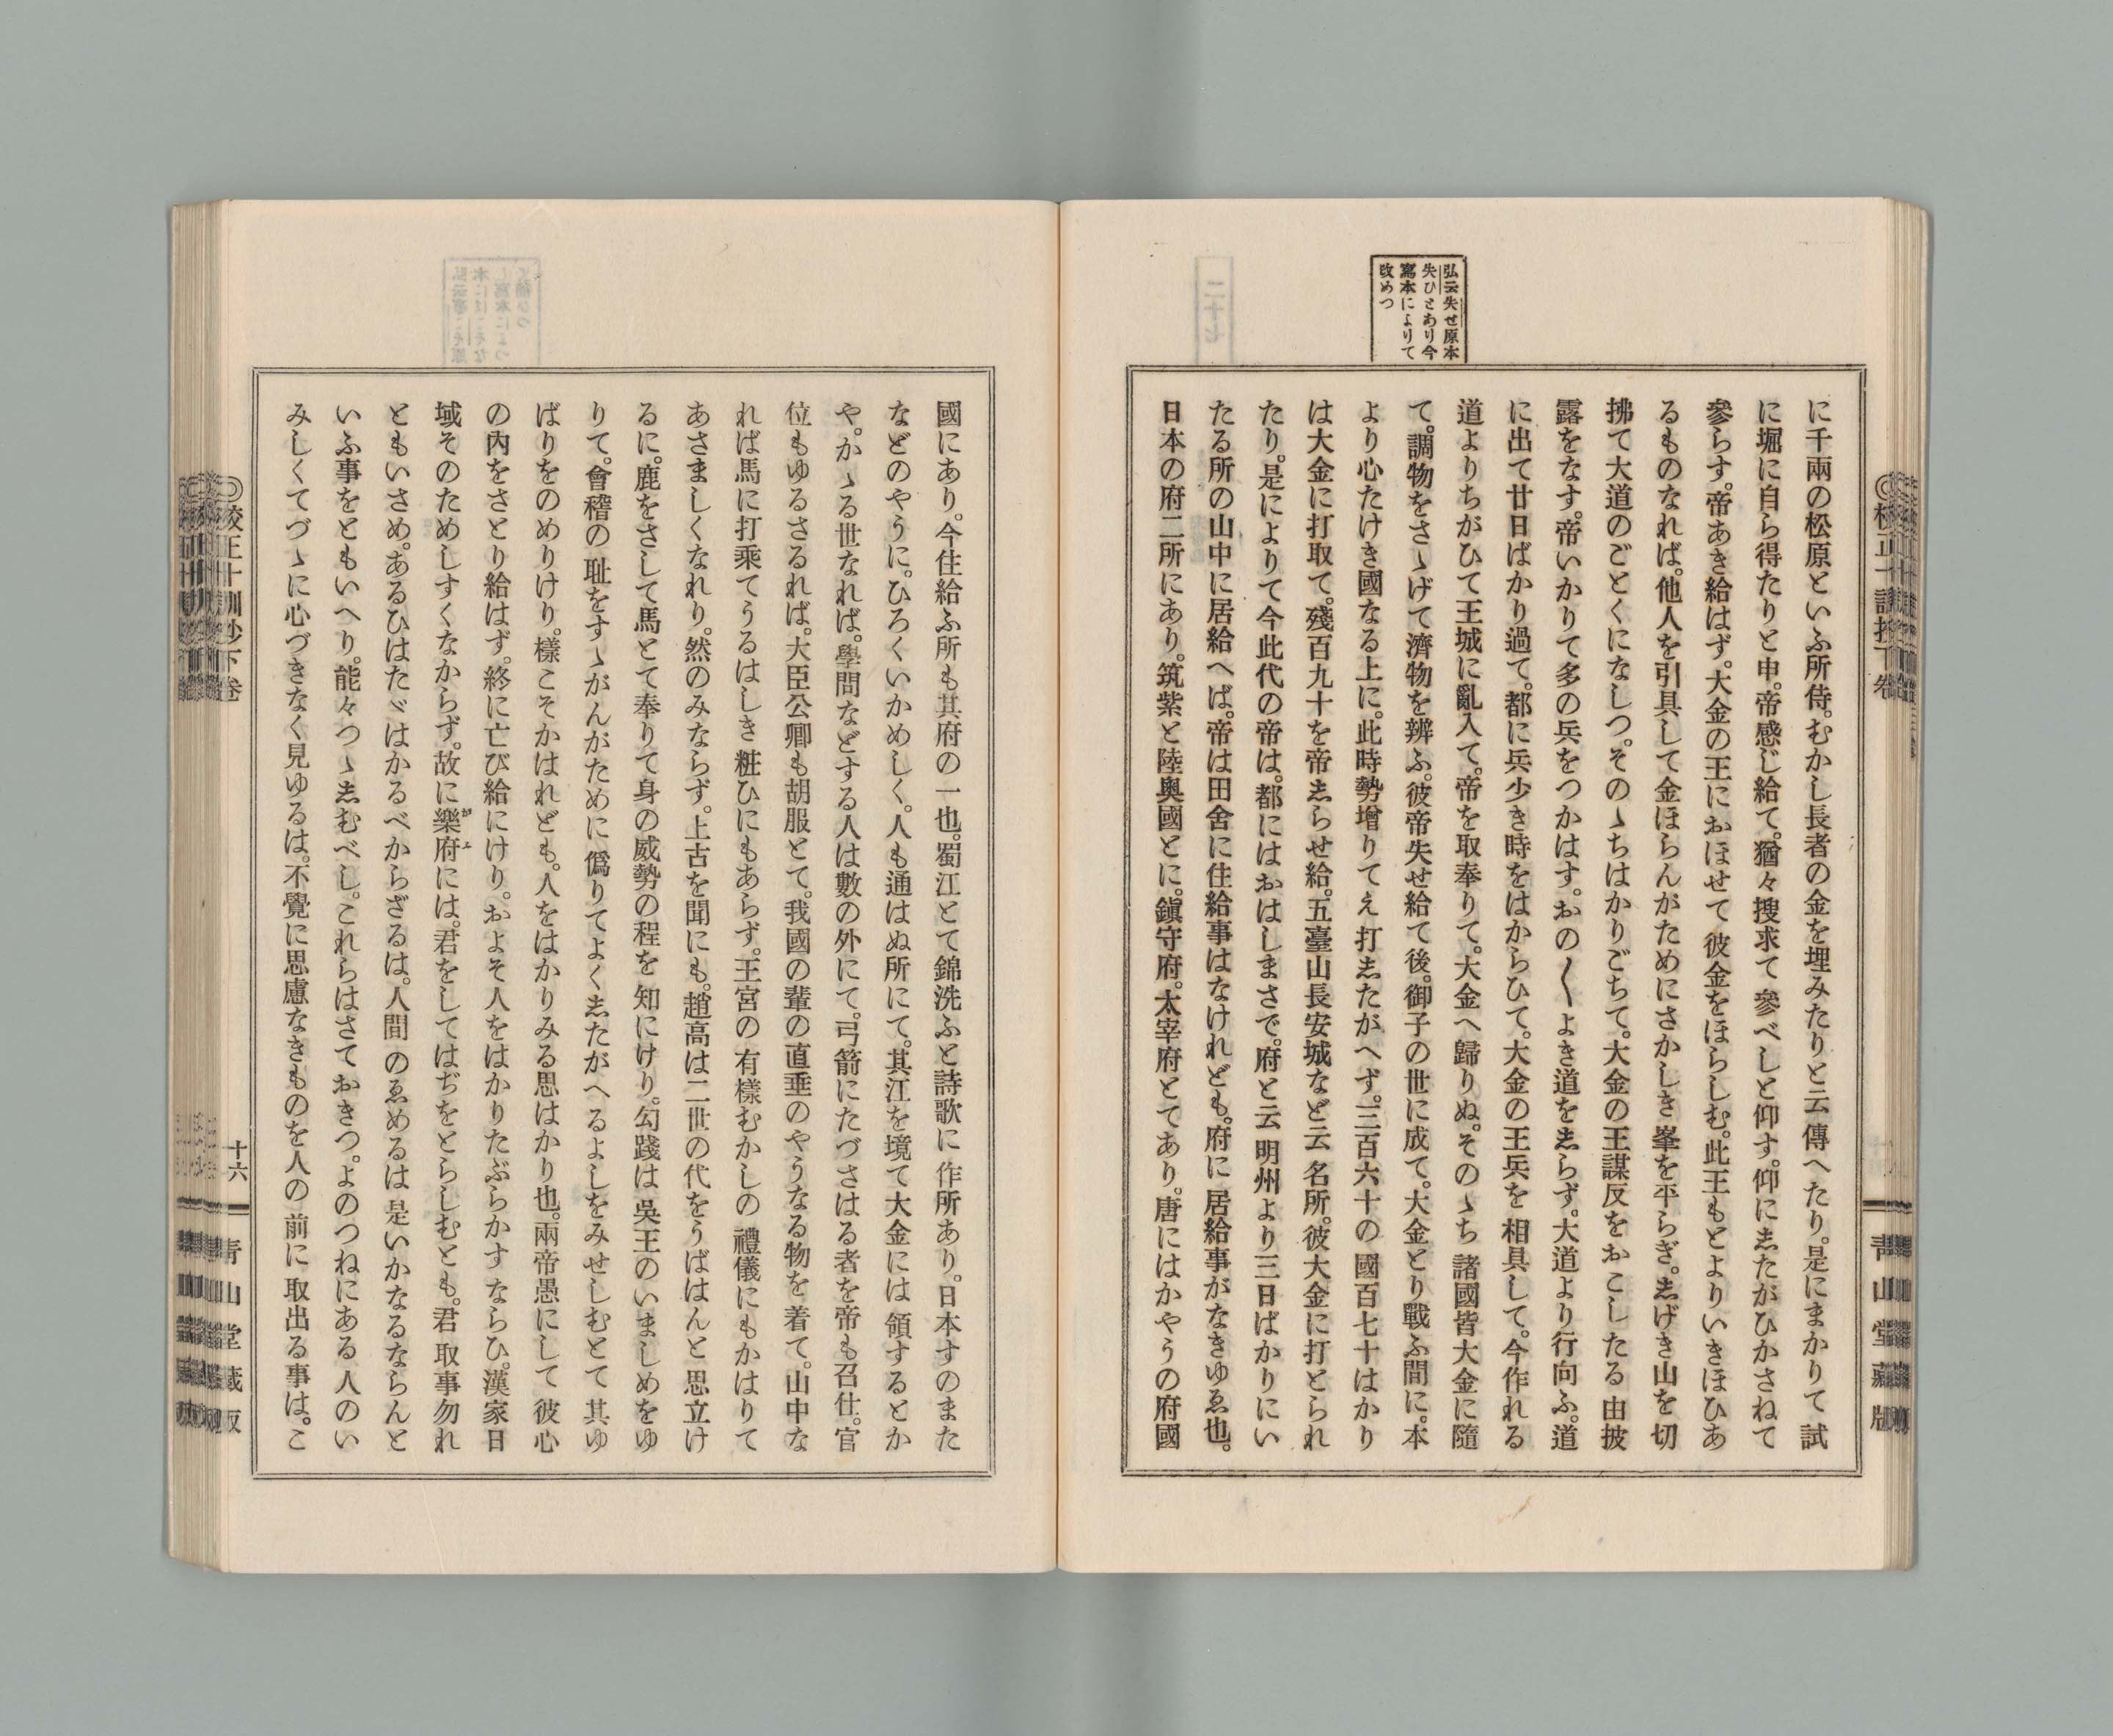 弘云失せ原本
失ひとあり今
寫本によりて
改めつ
に千兩の松原といふ所侍。むかし長者の金を埋みたりと云傳へたり。是にまかりて試
に堀に自ら得たりと申。帝感じ給て。猶々搜求て參べしと仰す。仰にしたがひかさねて
參らす。帝あき給はず。大金の王におほせて彼金をほらしむ。此王もとよりいきほひあ
るものなれば。他人を引具して金ほらんがためにさかしき峯を平らぎ。しげき山を切
拂て大道のごとくになしつ。そのゝちはかりごちて。大金の王謀反をおこしたる由披
露をなす。帝いかりて多の兵をつかはす。おの〱よき道をしらず。大道より行向ふ。道
に出て廿日ばかり過て。都に兵少き時をはからひて。大金の王兵を相具して。今作れる
道よりちがひて王城に亂入て。帝を取奉りて。大金へ歸りぬ。そのゝち諸國皆大金に隨
て。調物をさゝげて濟物を辨ふ。彼帝失せ給て後。御子の世に成て。大金とり戰ふ間に。本
より心たけき國なる上に。此時勢增りてえ打したがへず。三百六十の國百七十はかり
は大金に打取て。殘百九十を帝しらせ給。五臺山長安城など云名所。彼大金に打とられ
たり。是によりて今此代の帝は。都にはおはしまさで。府と云明州より三日ばかりにい
たる所の山中に居給へば。帝は田舍に住給事はなけれども。府に居給事がなきゆゑ也。
日本の府二所にあり。筑紫と陸奧國とに。鎭守府。太宰府とてあり。唐にはかやうの府國
靑山堂藏版
國にあり。今住給ふ所も其府の一也。蜀江とて錦洗ふと詩歌に作所あり。日本すのまた
などのやうに。ひろくいかめしく。人も通はぬ所にて。其江を境て大金には領するとか
や。かゝる世なれば。學問などする人は數の外にて。弓箭にたづさはる者を帝も召仕。官
位もゆるさるれば。大臣公卿も胡服とて。我國の輩の直垂のやうなる物を着て。山中な
れば馬に打乘てうるはしき粧ひにもあらず。王宮の有樣むかしの禮儀にもかはりて
あさましくなれり。然のみならず。上古を聞にも。趙高は二世の代をうばはんと思立け
るに。鹿をさして馬とて奉りて身の威勢の程を知にけり。勾踐は吳王のいましめをゆ
りて。會稽の耻をすゝがんがために僞りてよくしたがへるよしをみせしむとて其ゆ
ばりをのめりけり。樣こそかはれども。人をはかりみる思はかり也。兩帝愚にして彼心
の內をさとり給はず。終に亡び給にけり。およそ人をはかりたぶらかすならひ。漢家日
域そのためしすくなからず。故に樂府には。君をしてはぢをとらしむとも。君取事勿れ
ともいさめ。あるひはたゞはかるべからざるは。人間のゑめるは是いかなるならんと
いふ事をともいへり。能々つゝしむべし。これらはさておきつ。よのつねにある人のい
みしくてづゝに心づきなく見ゆるは。不覺に思慮なきものを人の前に取出る事は。こ
校正十訓抄下卷
十六
靑山堂藏版